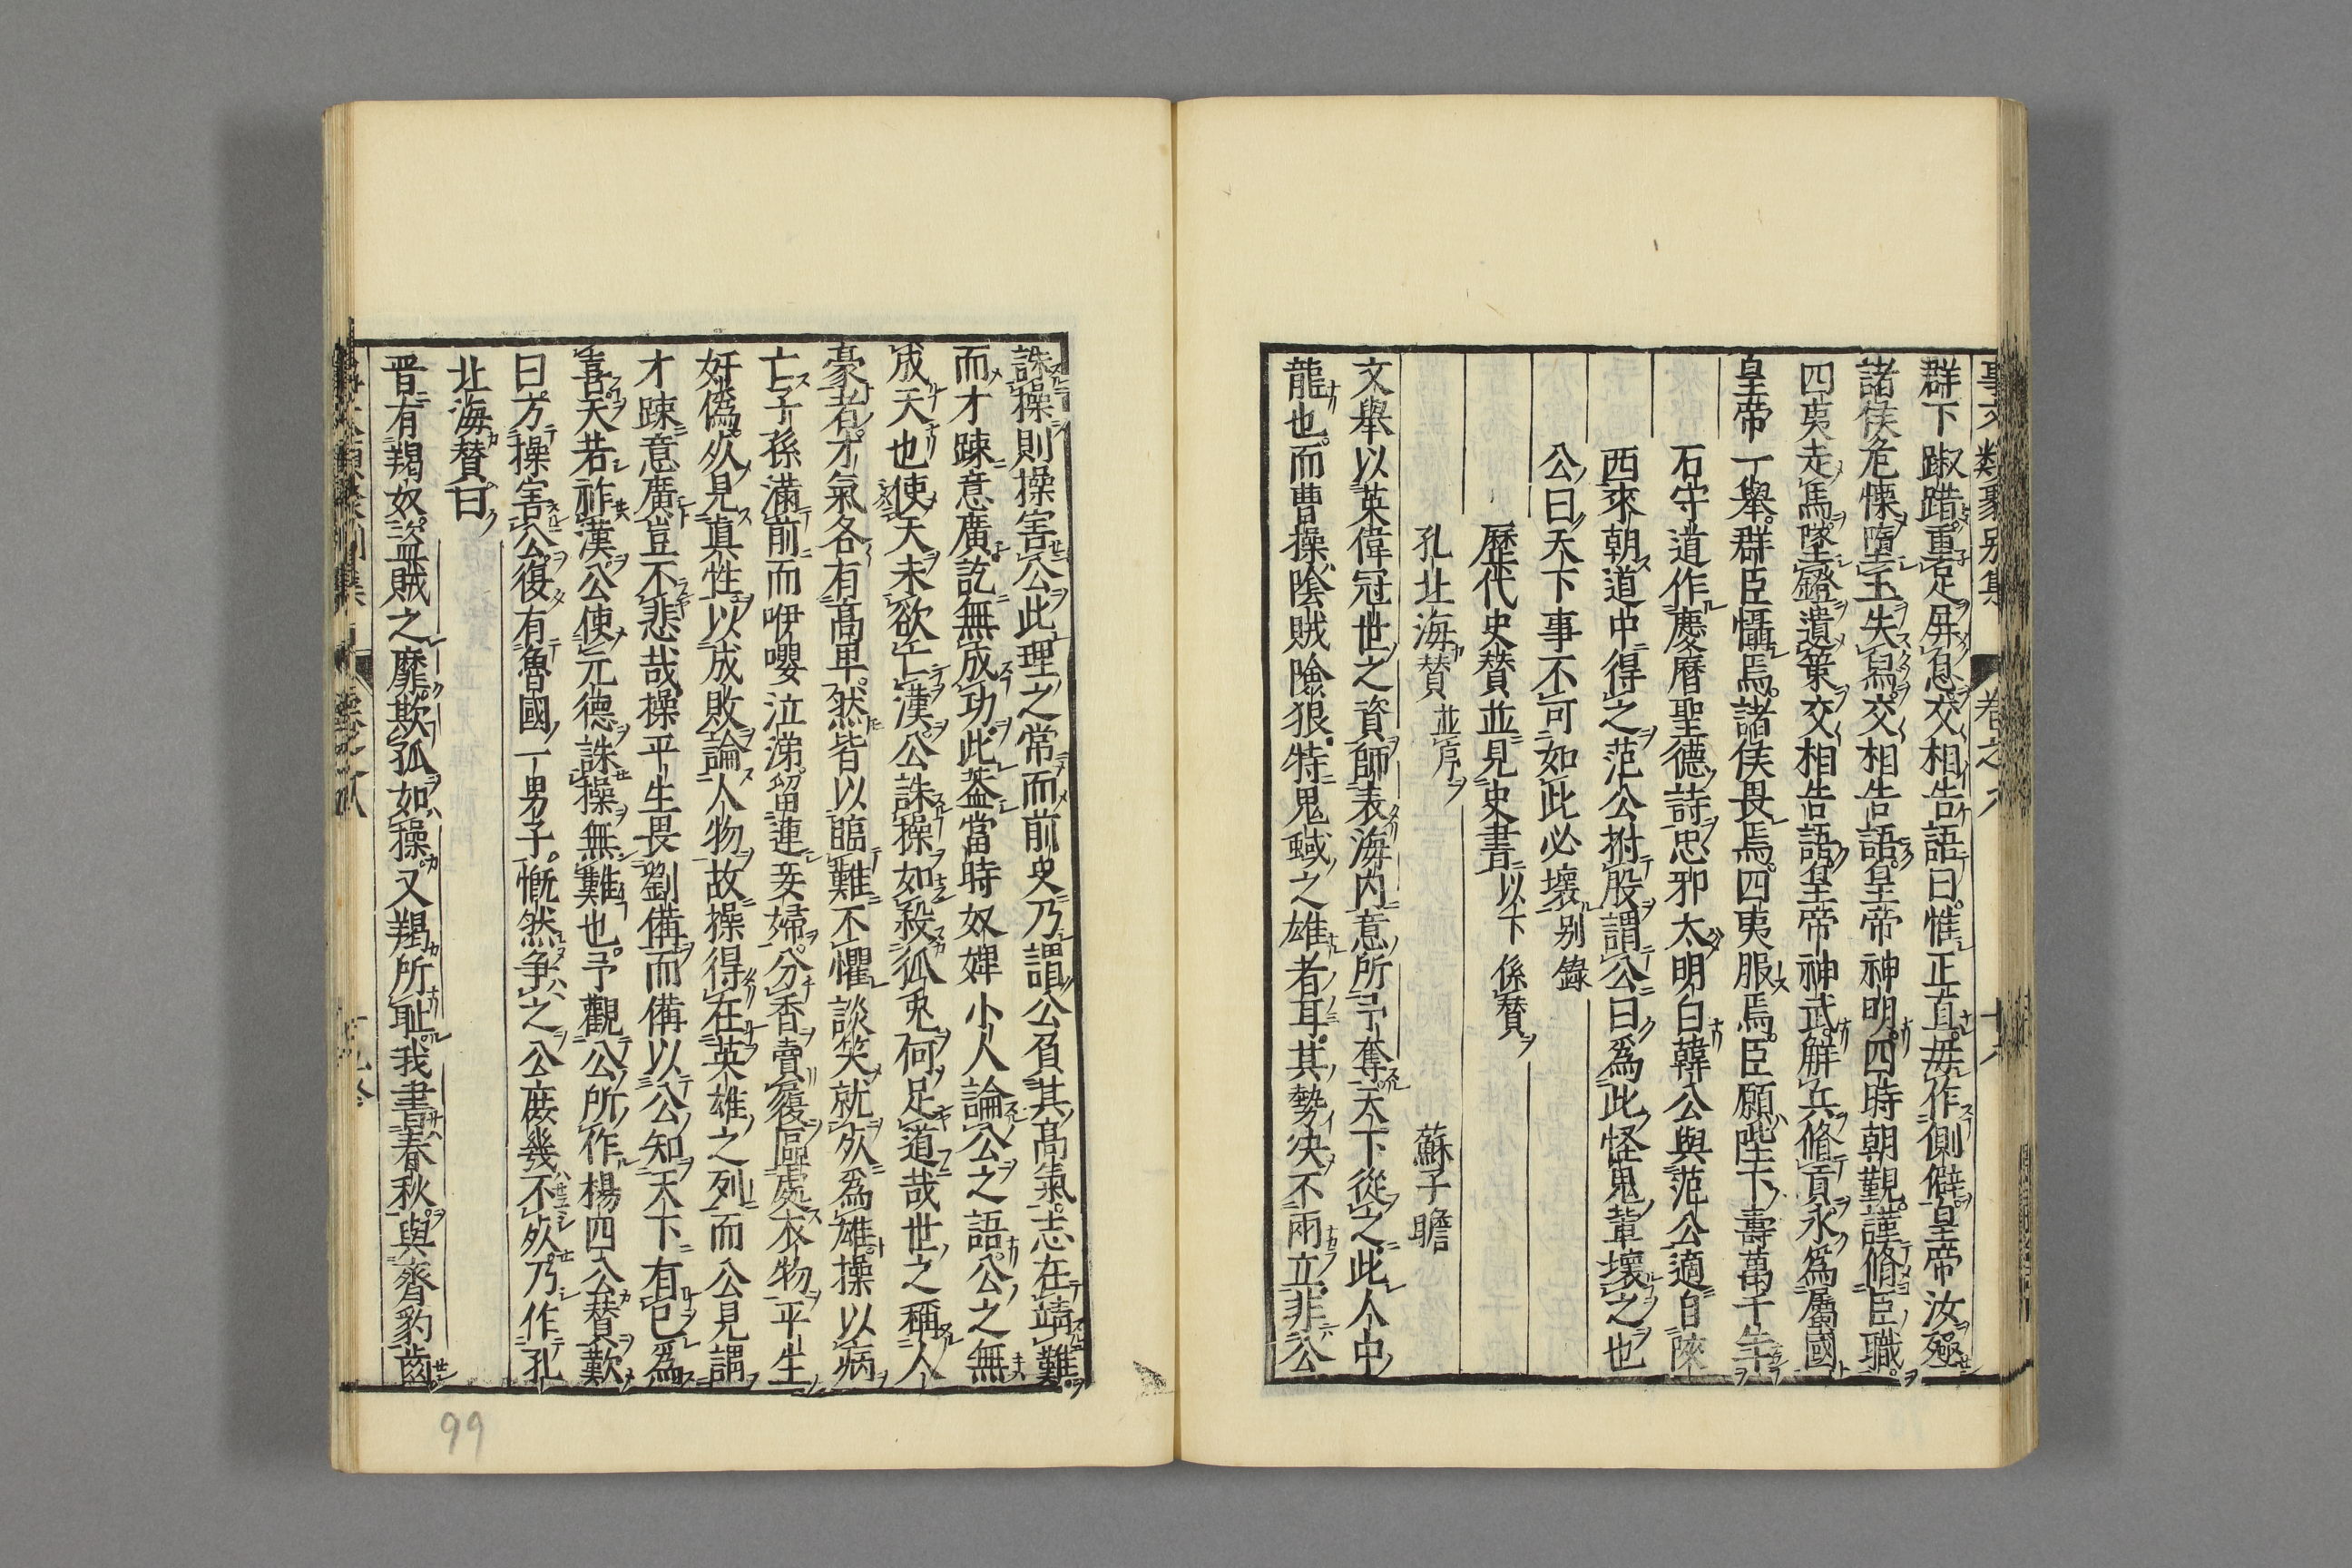 事文類聚别集 卷之八 十八
群下踧踖重足屏息交相告語曰惟正直毋作側僻皇帝汝殛
諸侯危慄墮玉失舄交相告語皇帝神明四時朝覲謹脩臣職
四夷走馬墜鐙遺策交相告語皇帝神武解兵脩貢永爲屬國
皇帝一舉群臣懾焉諸侯畏焉四夷服焉臣願陛下壽萬千年
石守道作慶曆聖德詩忠邪太明白韓公與范公適自陝
西來朝道中得之范公拊股謂公曰爲此怪鬼輩壞之也
公曰天下事不可如此必壞别錄
歷代史賛並見史書以下係賛
孔北海賛並序 蘇子瞻
文舉以英偉冠世之資師表海内意所予奪天下從之此人中
龍也而曹操陰賊險狠特鬼蜮之雄者耳其勢决不兩立非公
誅操則操害公此理之常而前史乃謂公負其高氣志在靖難
而才踈意廣訖無成功此葢當時奴婢小人論公之語公之無
成天也使天未欲亡漢公誅操如殺狐兎何足道哉世之稱人
豪者才氣各有高卑然皆以臨難不懼談笑就死爲雄操以病
亡子孫滿前而咿嚶泣涕留連妾婦分香賣履區處衣物平生
奸僞死見真性以成敗論人物故操得在英雄之列而公見謂
才踈意廣豈不悲哉操平生畏劉備而備以公知天下有已爲
喜天若祚漢公使元德誅操無難也予觀公所作楊四公賛歎
曰方操害公復有魯國一男子慨然争之公庶幾不死乃作孔
北海賛曰
晋有羯奴盗賊之靡欺孤如操又羯所恥我書春秋與齊豹齒